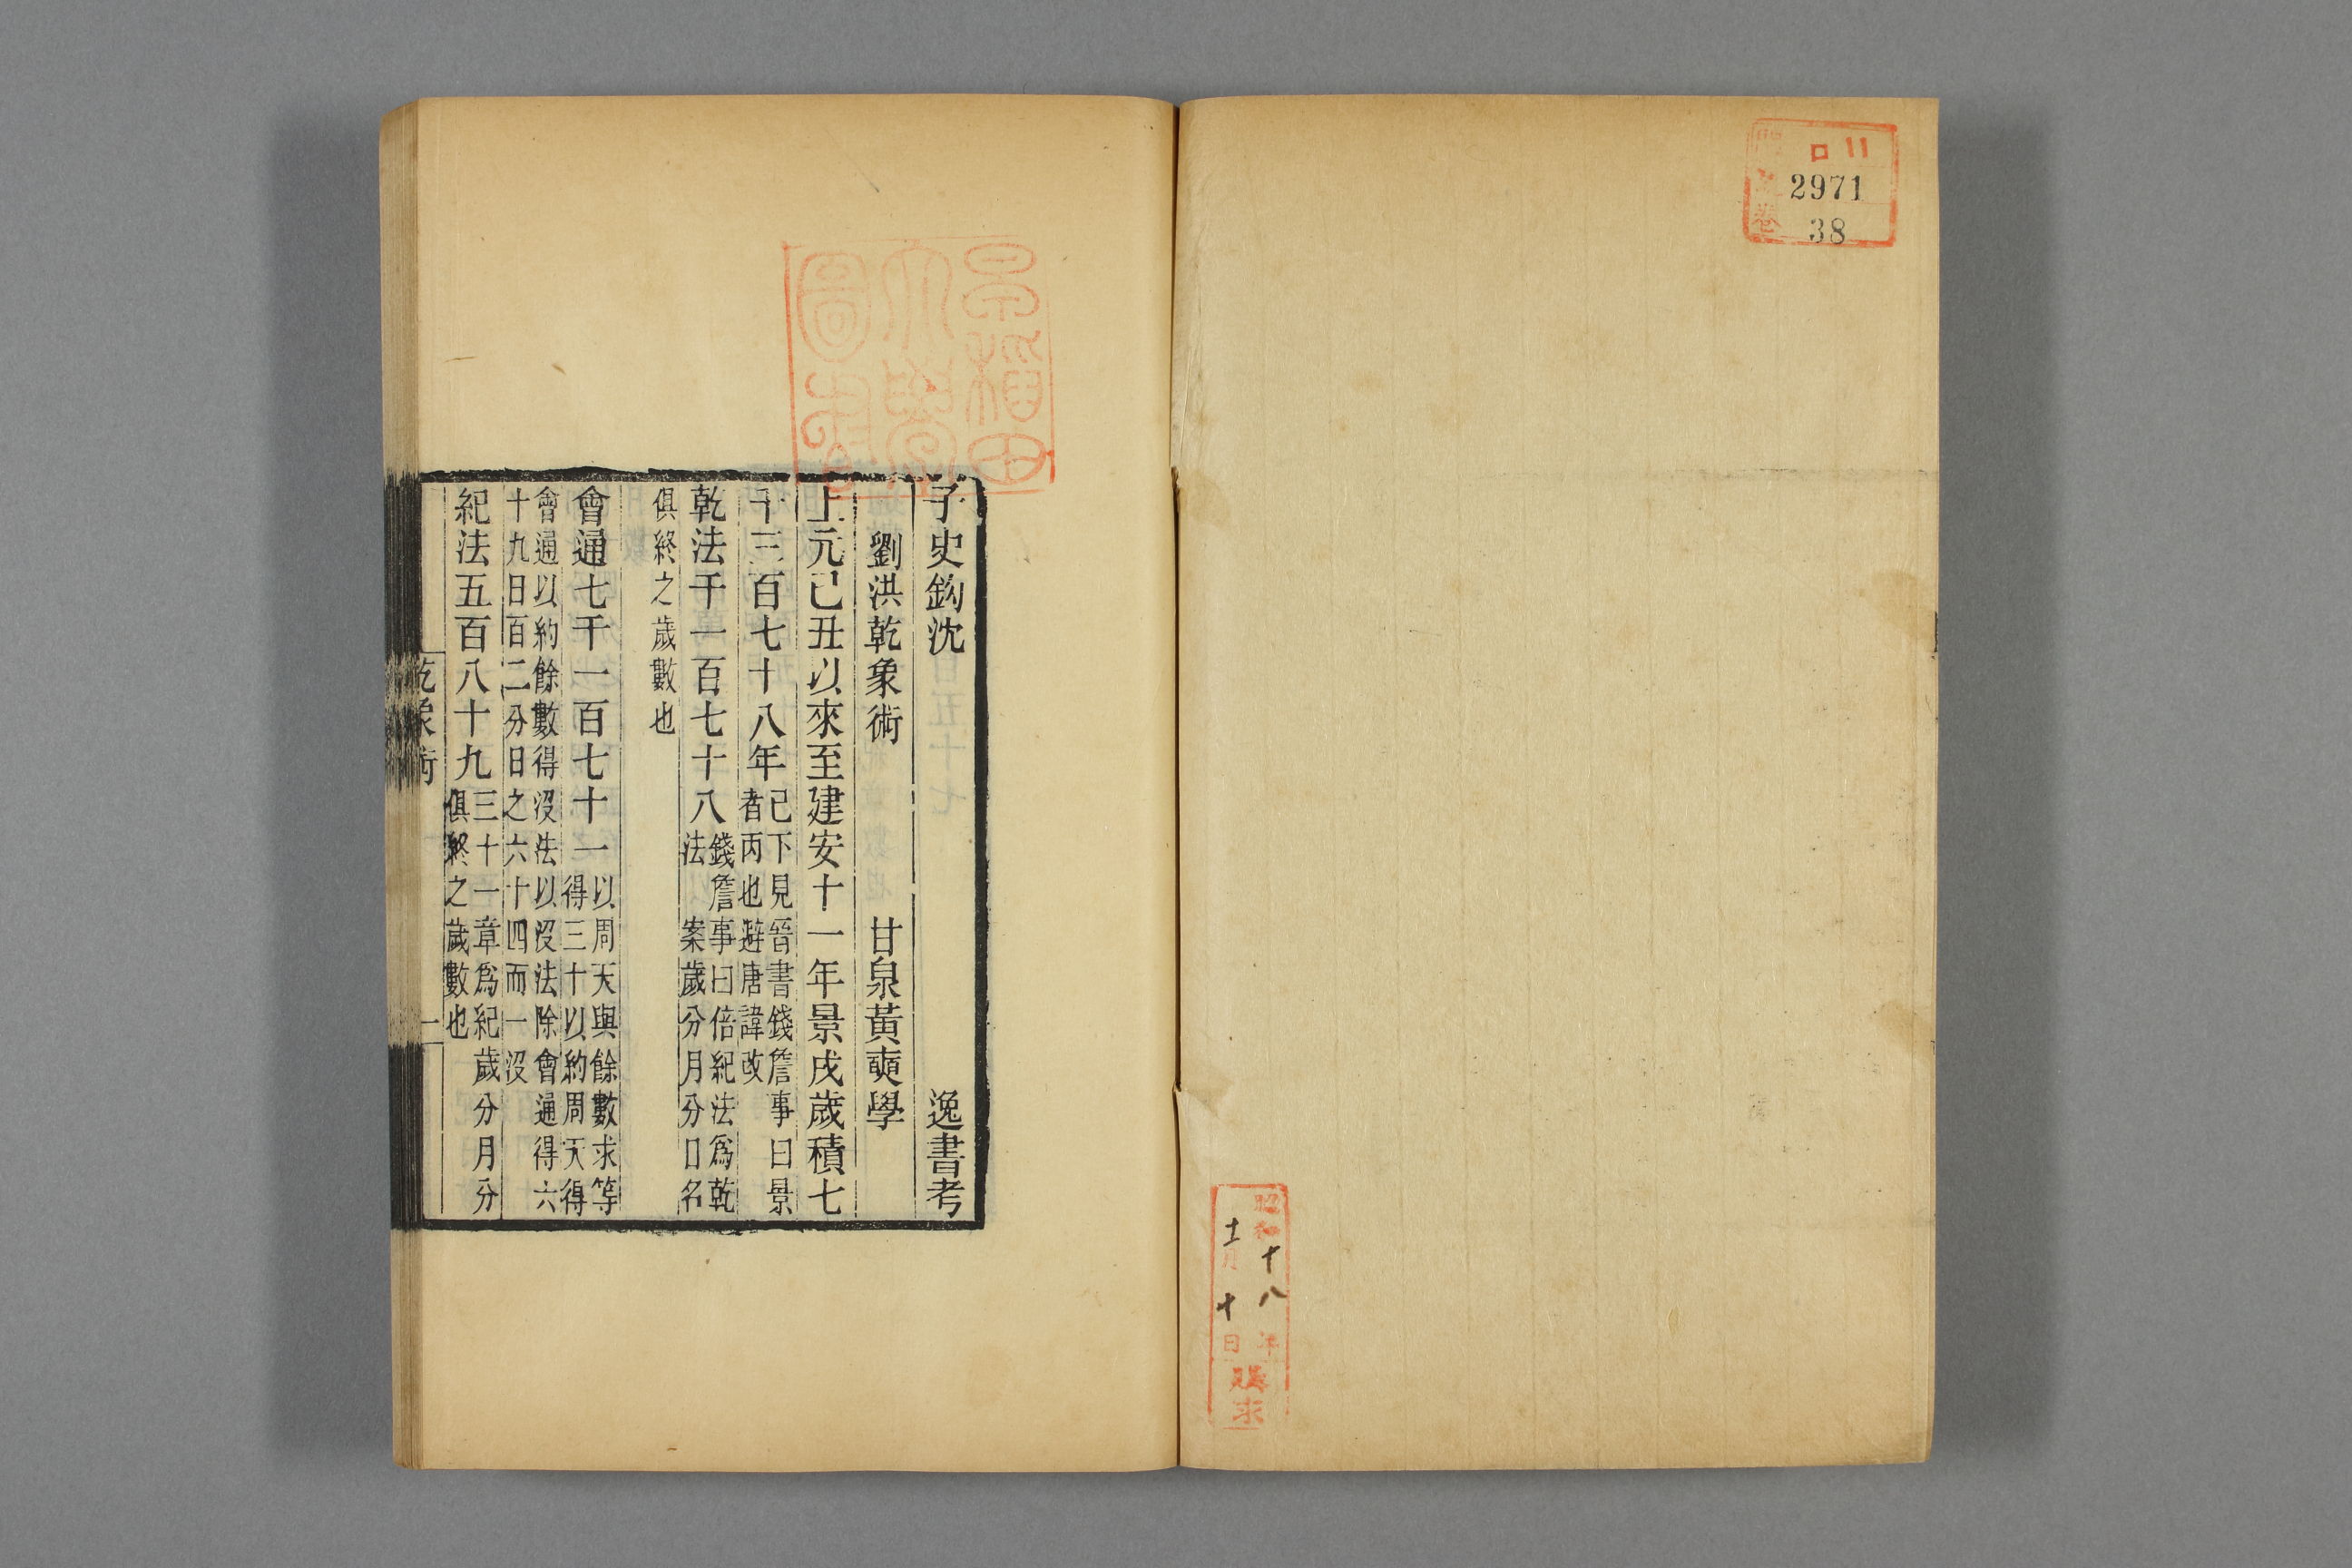 ロ11
2971
38
昭和十八年
十二月十日
購求
早稲田
大學
圖書
子史鈎沈 逸書考
劉洪乾象術 甘泉黃奭學
上元己丑以來至建安十一年景戌歲積七
千三百七十八年 己下見晉書錢詹事曰景
者丙也避唐諱改
乾法千一百七十八 錢詹事曰倍紀法爲乾
法 案歲分月分日名
俱終之歲數也
會通七千一百七十一 以周天與餘數求等
得三十以約周天得
會通以約餘數得沒法以沒法除會通得六
十九日百二分日之六十四而一沒
紀法五百八十九 三十一章爲紀歲分月分
俱終之歲數也
乾象術 一